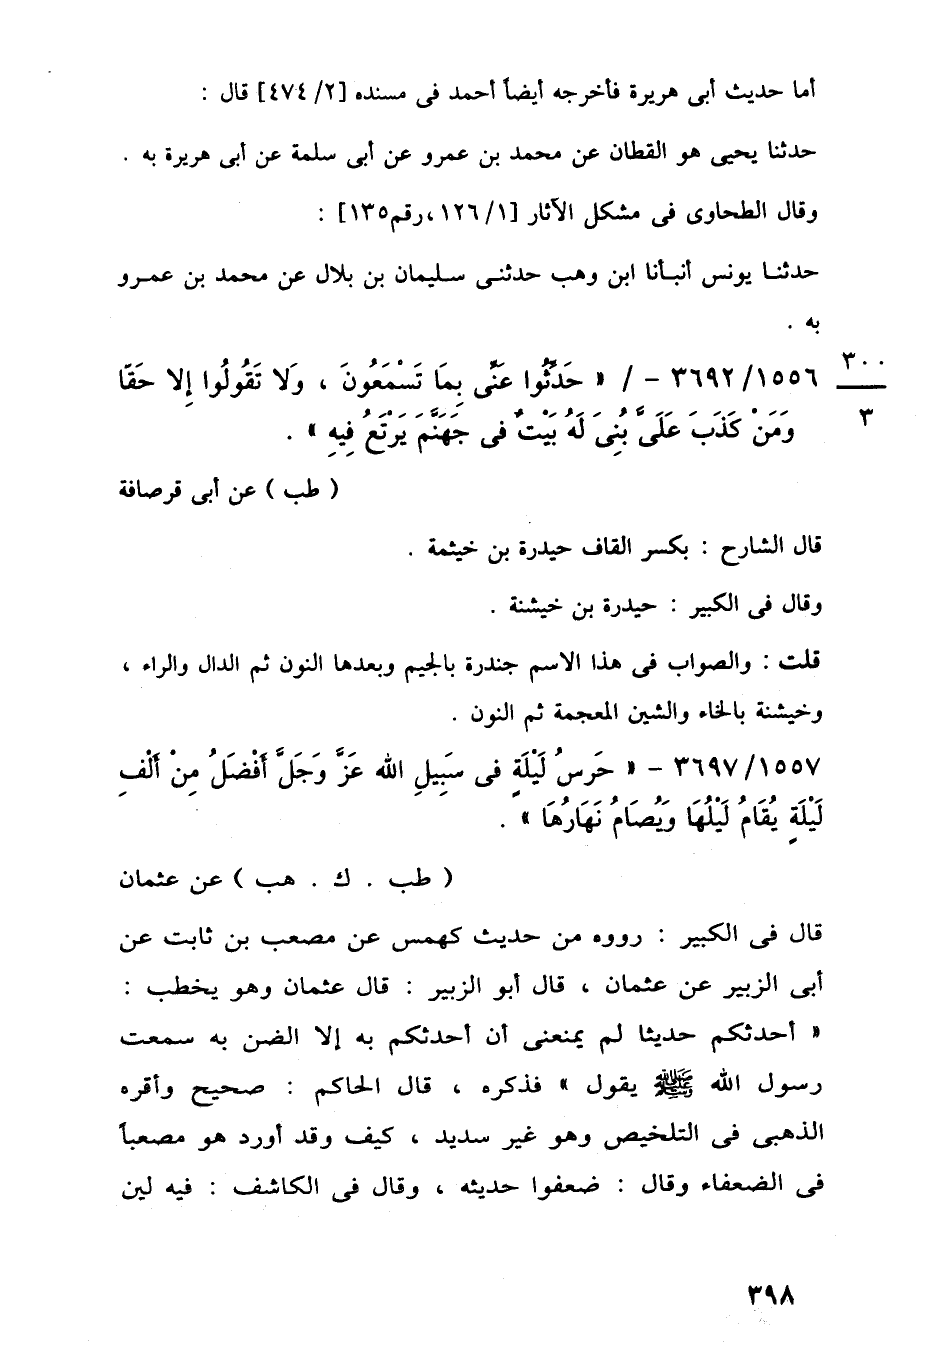 أما حديث أبى هريرة فأخرجه أيضاً أحمد فى مسنده [٢/ ٤٧٤] قال :
حدثنا يحيى هو القطان عن محمد بن عمرو عن أبى سلمة عن أبى هريرة به .
وقال الطحاوى فى مشكل الآثار [١/ ١٢٦،رقم١٣٥] :
حدثنا يونس أنبأنا ابن وهب حدثنى سليمان بن بلال عن محمد بن عمرو
به .
٣٠٠
٣
١٥٥٦/ ٣٦٩٢ – / « حَدِّثُوا عَنِّى بِمَا تَسْمَعُونَ ، وَلا تَقُولُوا إِلا حَقَا
وَمَنْ كَذَبَ عَلَىَّ بُنِى لَهُ بَيْتٌ فى جَهَنَّمَ يَرْتَعُ فِيهِ » .
( طب ) عن أبى قرصافة
قال الشارح : بكسر القاف حيدرة بن خيثمة .
وقال فى الكبير : حيدرة بن خيشنة .
قلت : والصواب فى هذا الاسم جندرة بالجيم وبعدها النون ثم الدال والراء ،
وخيشنة بالخاء والشين المعجمة ثم النون .
١٥٥٧/ ٣٦٩٧ – « حَرَسُ لَيْلَةٍ فى سَبِيلِ الله عَزَّ وَجَلَّ أَفْضَلُ مِنْ أَلْفِ
لَيْلَةٍ يُقَامُ لَيْلُهَا وَيُصَامُ نَهَارُهَا » .
( طب . ك . هب ) عن عثمان
قال فى الكبير : رووه من حديث كهمس عن مصعب بن ثابت عن
أبى الزبير عن عثمان ، قال أبو الزبير : قال عثمان وهو يخطب :
« أحدثكم حديثا لم يمنعنى أن أحدثكم به إلا الضن به سمعت
رسول الله ﷺ يقول » فذكره ، قال الحاكم : صحيح وأقره
الذهبى فى التلخيص وهو غير سديد ، كيف وقد أورد هو مصعباً
فى الضعفاء وقال : ضعفوا حديثه ، وقال فى الكاشف : فيه لين
٣٩٨